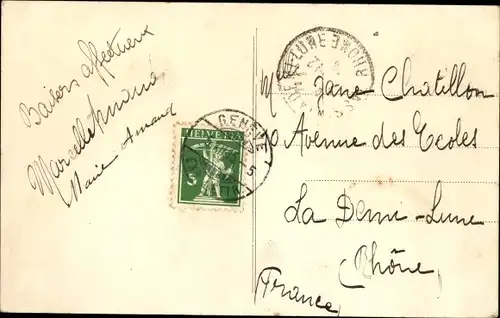 Baisers affectueux
Marcelle Amand
Marie Amand
HELVETIA
5
GENÈVE
LUNE
RHONE
Mlle Jane Chatillon
Avenue des Ecoles
La Demi-Lune
(Rhône)
France